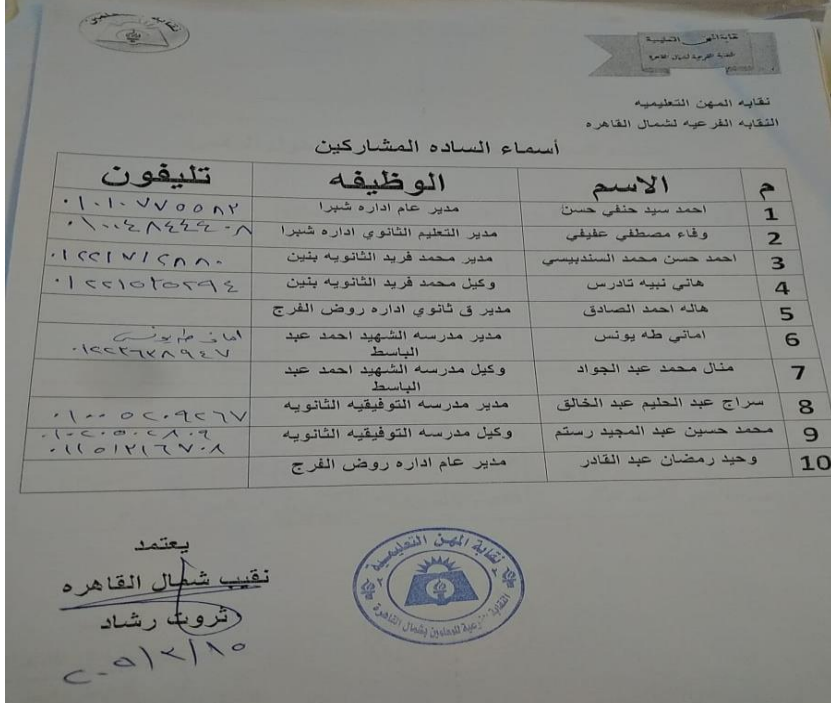 نقابة المهن التعليمية
نقابة المهن التعليمية
النقابة الفرعية لشمال القاهرة
نقابه المهن التعليميه
النقابه الفرعيه لشمال القاهره
أسماء الساده المشاركين
م الاسم الوظيفه تليفون
1 احمد سيد حنفي حسن مدير عام اداره شبرا ٠١٠١٠٧٧٥٥٨٢
2 وفاء مصطفي عفيفي مدير التعليم الثانوي اداره شبرا ٠١٠٠٤٨٤٤٤٠٨
3 احمد حسن محمد السندبيسي مدير محمد فريد الثانويه بنين
4 هاني نبيه تادرس وكيل محمد فريد الثانويه بنين ٠١٢٢١٥٢٥٢٩٤
5 هاله احمد الصادق مدير ق ثانوي اداره روض الفرج
6 اماني طه يونس مدير مدرسه الشهيد احمد عبد الباسط اماني طه يونس
٠١٢٢٣٦٣٨٩٤٧
7 منال محمد عبد الجواد وكيل مدرسه الشهيد احمد عبد الباسط
8 سراج عبد الحليم عبد الخالق مدير مدرسه التوفيقيه الثانويه ٠١٠٠٥٢٠٩٢٦٧
9 محمد حسين عبد المجيد رستم وكيل مدرسه التوفيقيه الثانويه ٠١٠٢٠٥٠٢٨٠٩
٠١١٥١٢١٦٧٠٨
10 وحيد رمضان عبد القادر مدير عام اداره روض الفرج
يعتمد
نقيب شمال القاهره
ثروت رشاد
نقابة المهن التعليمية
النقابة الفرعية للمعلمين بشمال القاهرة